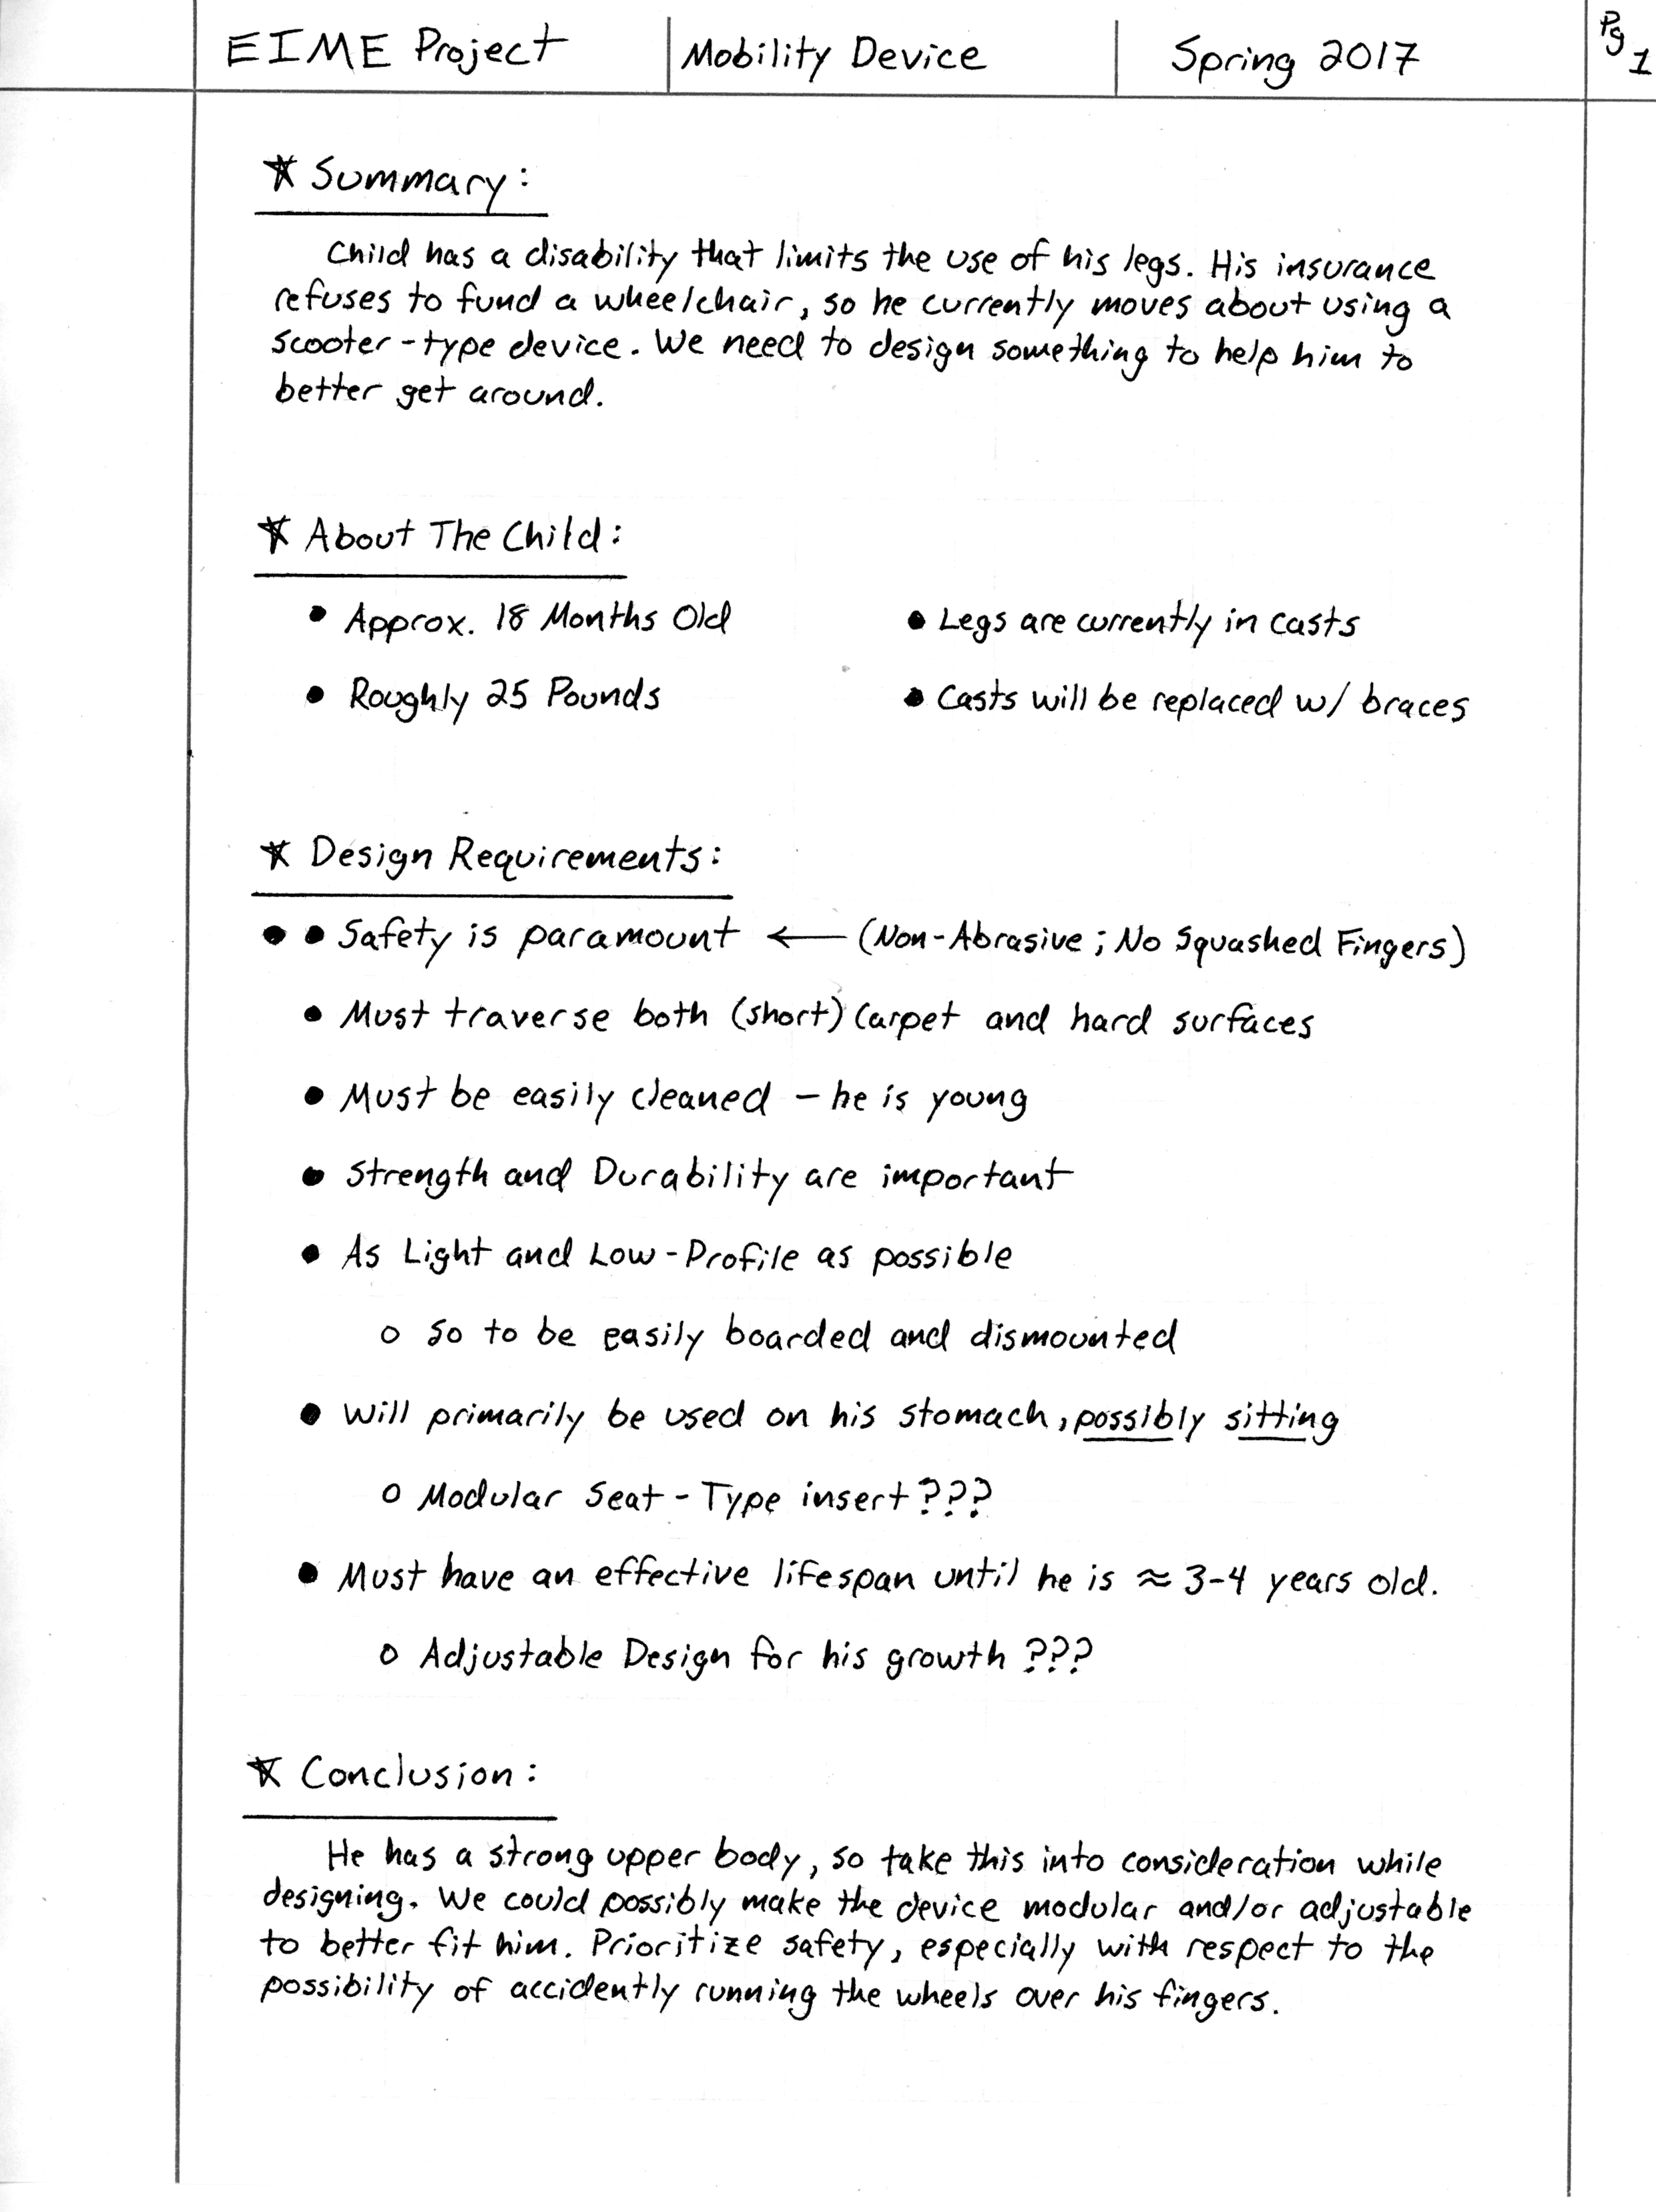 EIME Project | Mobility Device | Spring 2017 | Pg 1
* Summary:
Child has a disability that limits the use of his legs. His insurance
refuses to fund a wheelchair, so he currently moves about using a
scooter-type device. We need to design something to help him to
better get around.
* About The Child:
• Approx. 18 Months Old
• Roughly 25 Pounds
• Legs are currently in casts
• Casts will be replaced w/ braces
* Design Requirements:
• • Safety is paramount ← (Non-Abrasive; No Squashed Fingers)
• Must traverse both (short) Carpet and hard surfaces
• Must be easily cleaned - he is young
• Strength and Durability are important
• As Light and Low-Profile as possible
o So to be easily boarded and dismounted
• Will primarily be used on his stomach, possibly sitting
o Modular Seat-Type insert???
• Must have an effective lifespan until he is ≈ 3-4 years old.
o Adjustable Design for his growth???
* Conclusion:
He has a strong upper body, so take this into consideration while
designing. We could possibly make the device modular and/or adjustable
to better fit him. Prioritize safety, especially with respect to the
possibility of accidently running the wheels over his fingers.